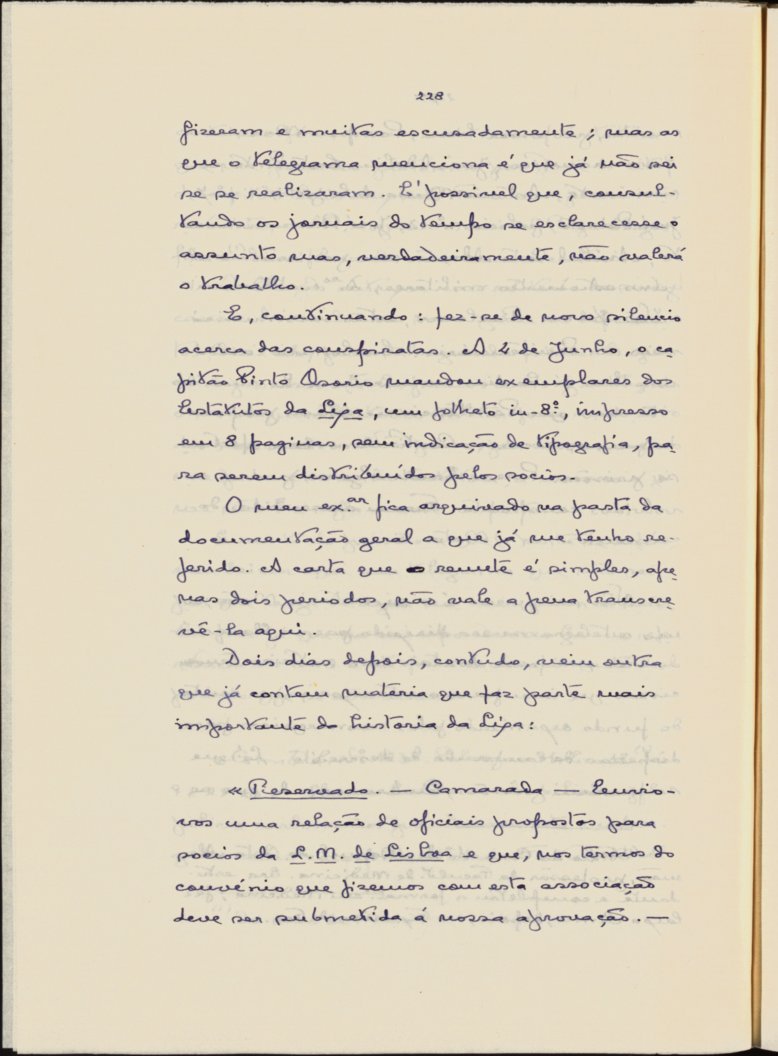 228
fizeram e muitas escusadamente; mas as
que o telegrama menciona é que já não sei
se se realizaram. E' possivel que, consul-
tando os jornais do tempo se esclarecesse o
assunto mas, verdadeiramente, não valerá
o trabalho.
E, continuando: fez-se de novo silencio
acerca das conspiratas. A 4 de Junho, o ca-
pitão Pinto Osorio mandou exemplares dos
Estatutos da Liga, um folheto in-8º, impresso
em 8 paginas, sem indicação de tipografia, pa-
ra serem distribuídos pelos socios.
O meu ex.ar fica arquivado na pasta da
documentação geral a que já me tenho re-
ferido. A carta que o remete é simples, ape-
nas dois periodos, não vale a pena transcre-
vê-la aqui.
Dois dias depois, contudo, veiu outra
que já contem matéria que faz parte mais
importante da historia da Liga:
«Reservado. — Camarada — Envio-
vos uma relação de oficiais propostos para
socios da L. M. de Lisboa e que, nos termos do
convénio que fizemos com esta associação
deve ser submetida á vossa aprovação. —